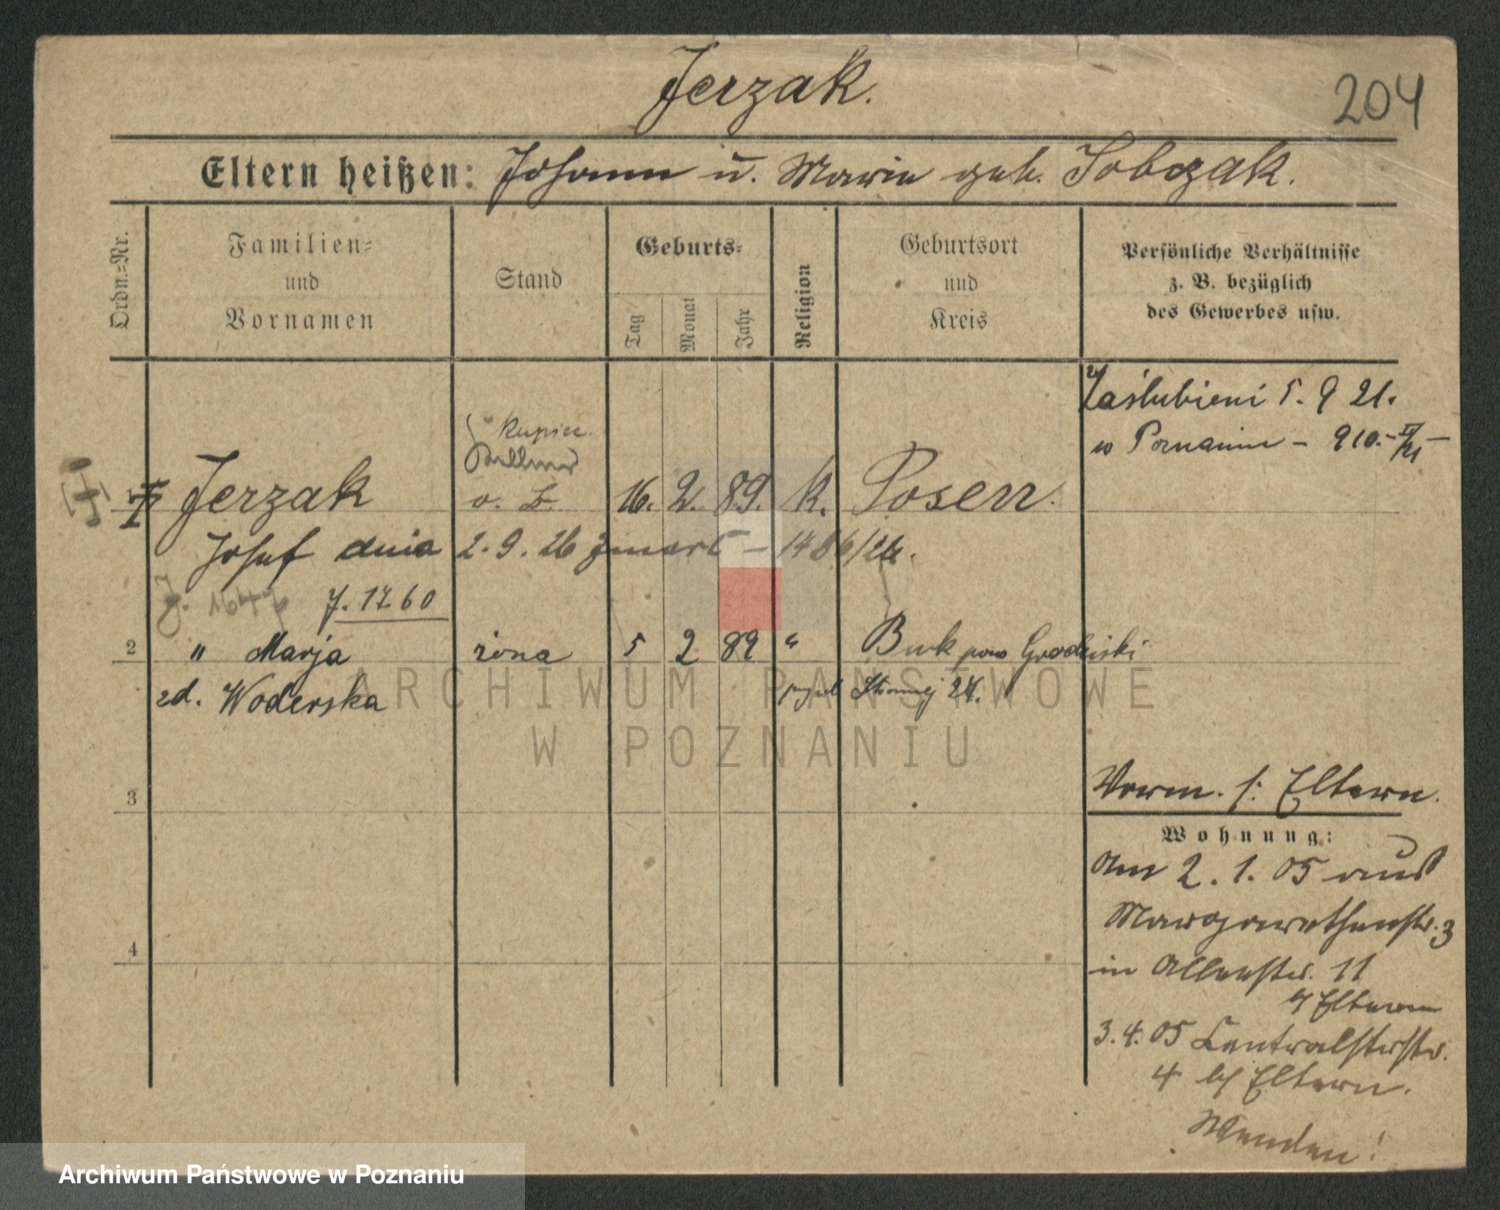 Jerzak.
204
Eltern heißen: Johann u. Marie geb. Sobczak.
Ordn.=Nr.
Familien=
und
Vornamen
Stand
Geburts=
Tag
Monat
Jahr
Religion
Geburtsort
und
Kreis
Persönliche Verhältnisse
z. B. bezüglich
des Gewerbes usw.
Zaślubieni 5. 9 21.
w Poznaniu – 910.
kupiec
Jerzak
16. 2. 89. k. Posen.
Josef dnia 2. 9. 26 zmarł – 1486/26.
J. 1760
2 " Marja żona 5 2 89 " Buk pow Grodziski
zd. Woderska
3
Vorm. s: Eltern.
Wohnung:
Am 2. 1. 05 aus
Margarethenstr. 3
in
11
b/ Eltern
3. 4. 05 Centralstrstr.
4 b/ Eltern.
Wenden!
4
ARCHIWUM PAŃSTWOWE
W POZNANIU
Archiwum Państwowe w Poznaniu